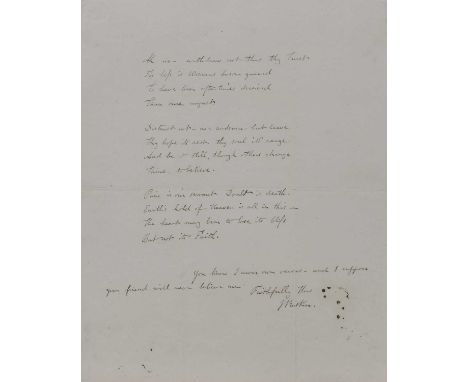 Ah no - withdraw not thus thy trust
To life is
To have been oft-times deceived
Than once
Distrust not - no - endure - but leave
Thy hope to rest, thy soul to range
And be it still, though others change
Thine - to believe.
Pain is our servant - Doubt is death.
Earth's hold of Heaven is all in this -
The heart may bear to lose its bliss
But not its Faith.
You know I never own verses - and I suppose
your friend will never believe me Faithfully thine
J Ruskin.